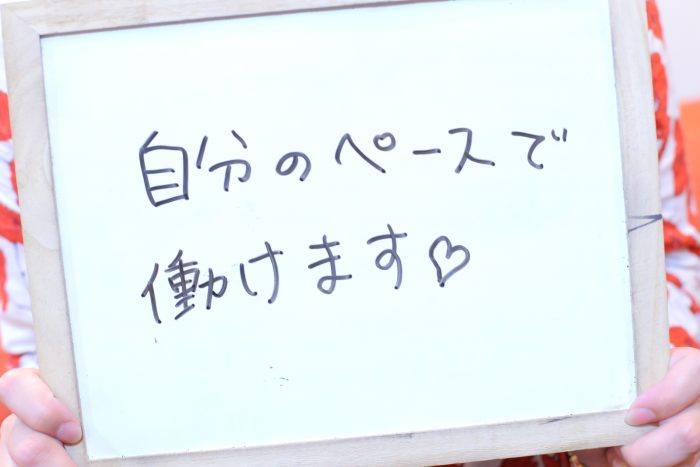 自分のペースで
働けます♡